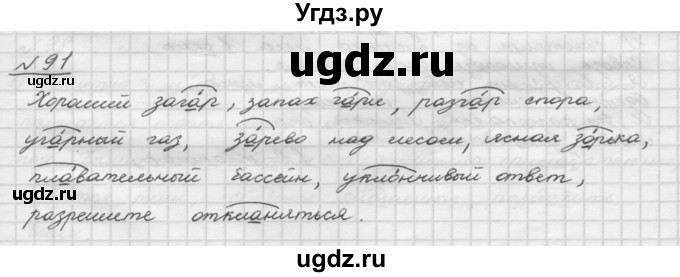 Угдз.ру
№91
Хороший загар, запах гари, разгар спора,
угарный газ, зарево над лесом, ясная зорька,
плавательный бассейн, уклончивый ответ,
разрешите откланяться.
угдз.ru
угдз.ru
угдз.ru
угдз.ru